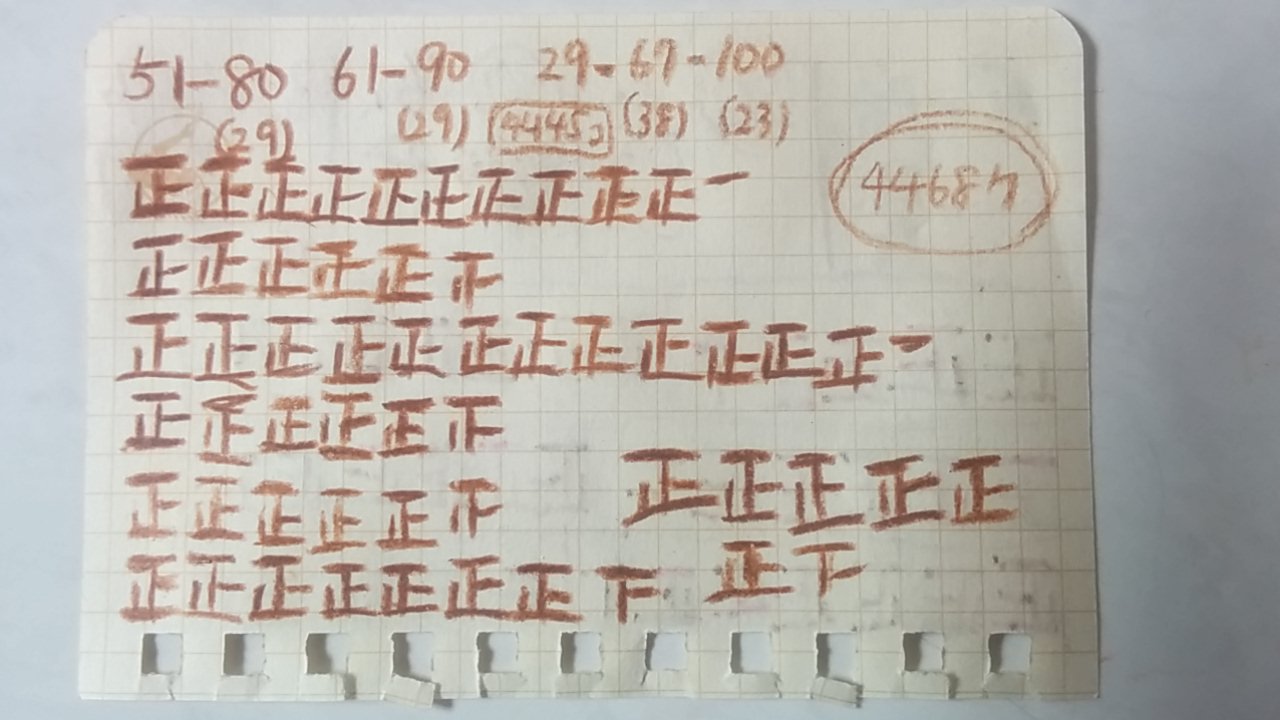 51-80 61-90 29-67-100
(29) (29) 4445 (38) (23)
44687
正正正正正正正正正正一
正正正正正𤴓
正正正正正正正正正正正正一
正正正正正𤴓
正正正正正𤴓
正正正正正正正下
正正正正正
正下